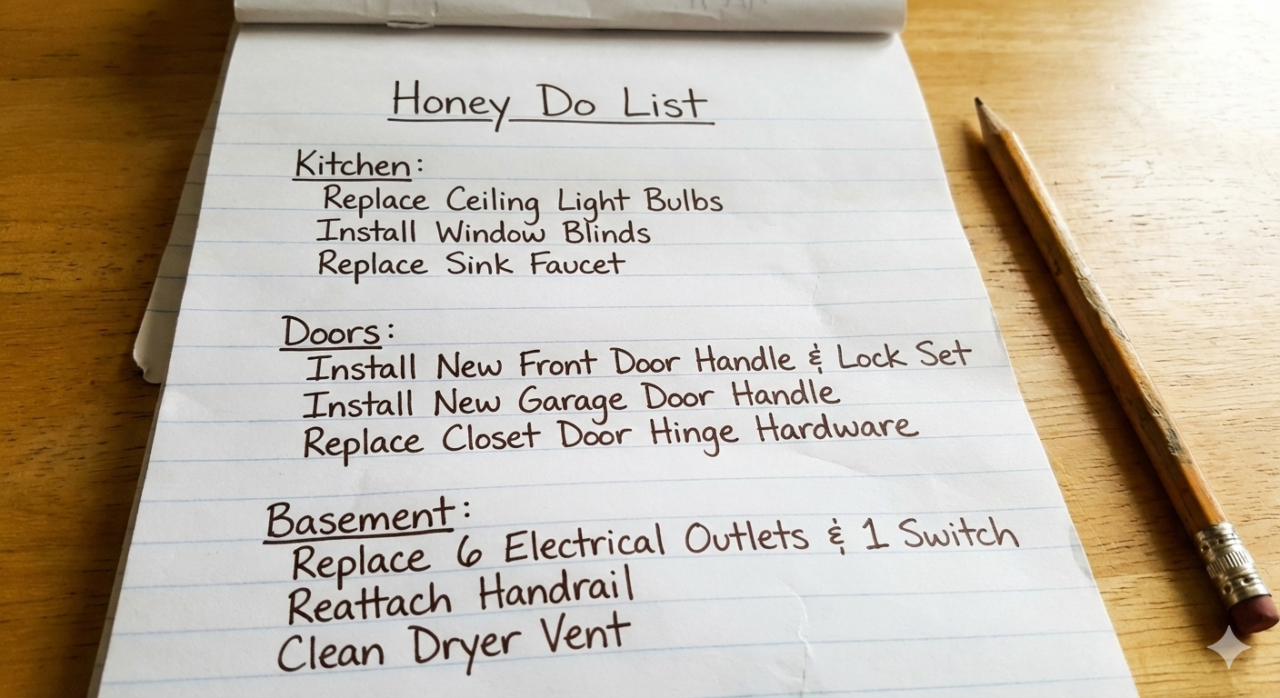 Honey Do List
Kitchen:
Replace Ceiling Light Bulbs
Install Window Blinds
Replace Sink Faucet
Doors:
Install New Front Door Handle & Lock Set
Install New Garage Door Handle
Replace Closet Door Hinge Hardware
Basement:
Replace 6 Electrical Outlets & 1 Switch
Reattach Handrail
Clean Dryer Vent